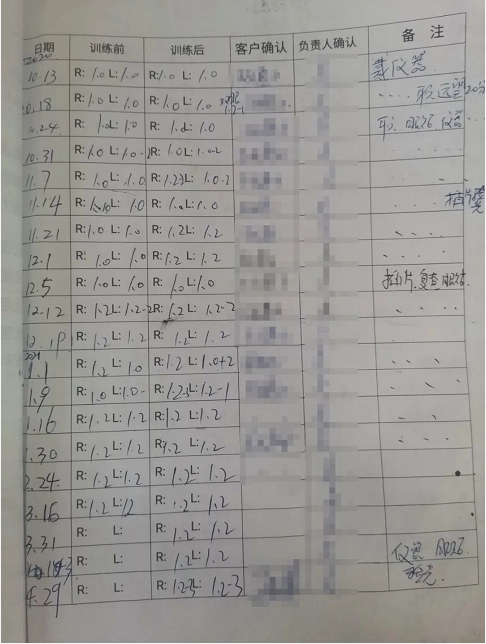 日期 训练前 训练后 客户确认 负责人确认 备注
2020
10.13 R: 1.0 L: 1.0 R: 1.0 L: 1.0 戴仪器
10.18 R: 1.0 L: 1.0 R: 1.0 L: 1.0
10.24 R: 1.0 L: 1.0 R: 1.0 L: 1.0
10.31 R: 1.0 L: 1.0-2 R: 1.0 L: 1.0-2
11.7 R: 1.0 L: 1.0 R: 1.2-3 L: 1.0-2
11.14 R: 1.0 L: 1.0 R: 1.0 L: 1.0
11.21 R: 1.0 L: 1.0 R: 1.2 L: 1.2
12.1 R: 1.0 L: 1.0 R: 1.2 L: 1.2
12.5 R: 1.0 L: 1.0 R: 1.0 L: 1.0 插片.复查
12.12 R: 1.2 L: 1.2-2 R: 1.2 L: 1.2-2
12.19 R: 1.2 L: 1.2 R: 1.2 L: 1.2
2021
1.1 R: 1.2 L: 1.0 R: 1.2 L: 1.0+2
1.9 R: 1.0 L: 1.0- R: 1.2-3 L: 1.2-1
1.16 R: 1.2 L: 1.2 R: 1.2 L: 1.2
1.30 R: 1.2 L: 1.2 R: 1.2 L: 1.2
2.24 R: 1.2 L: 1.2 R: 1.2 L: 1.2
3.16 R: 1.2 L: 1.2 R: 1.2 L: 1.2
3.31 R: L: R: 1.2 L: 1.2
R: L: R: 1.2 L: 1.2 仪器
4.29 R: L: R: 1.2-3 L: 1.2-3 验光